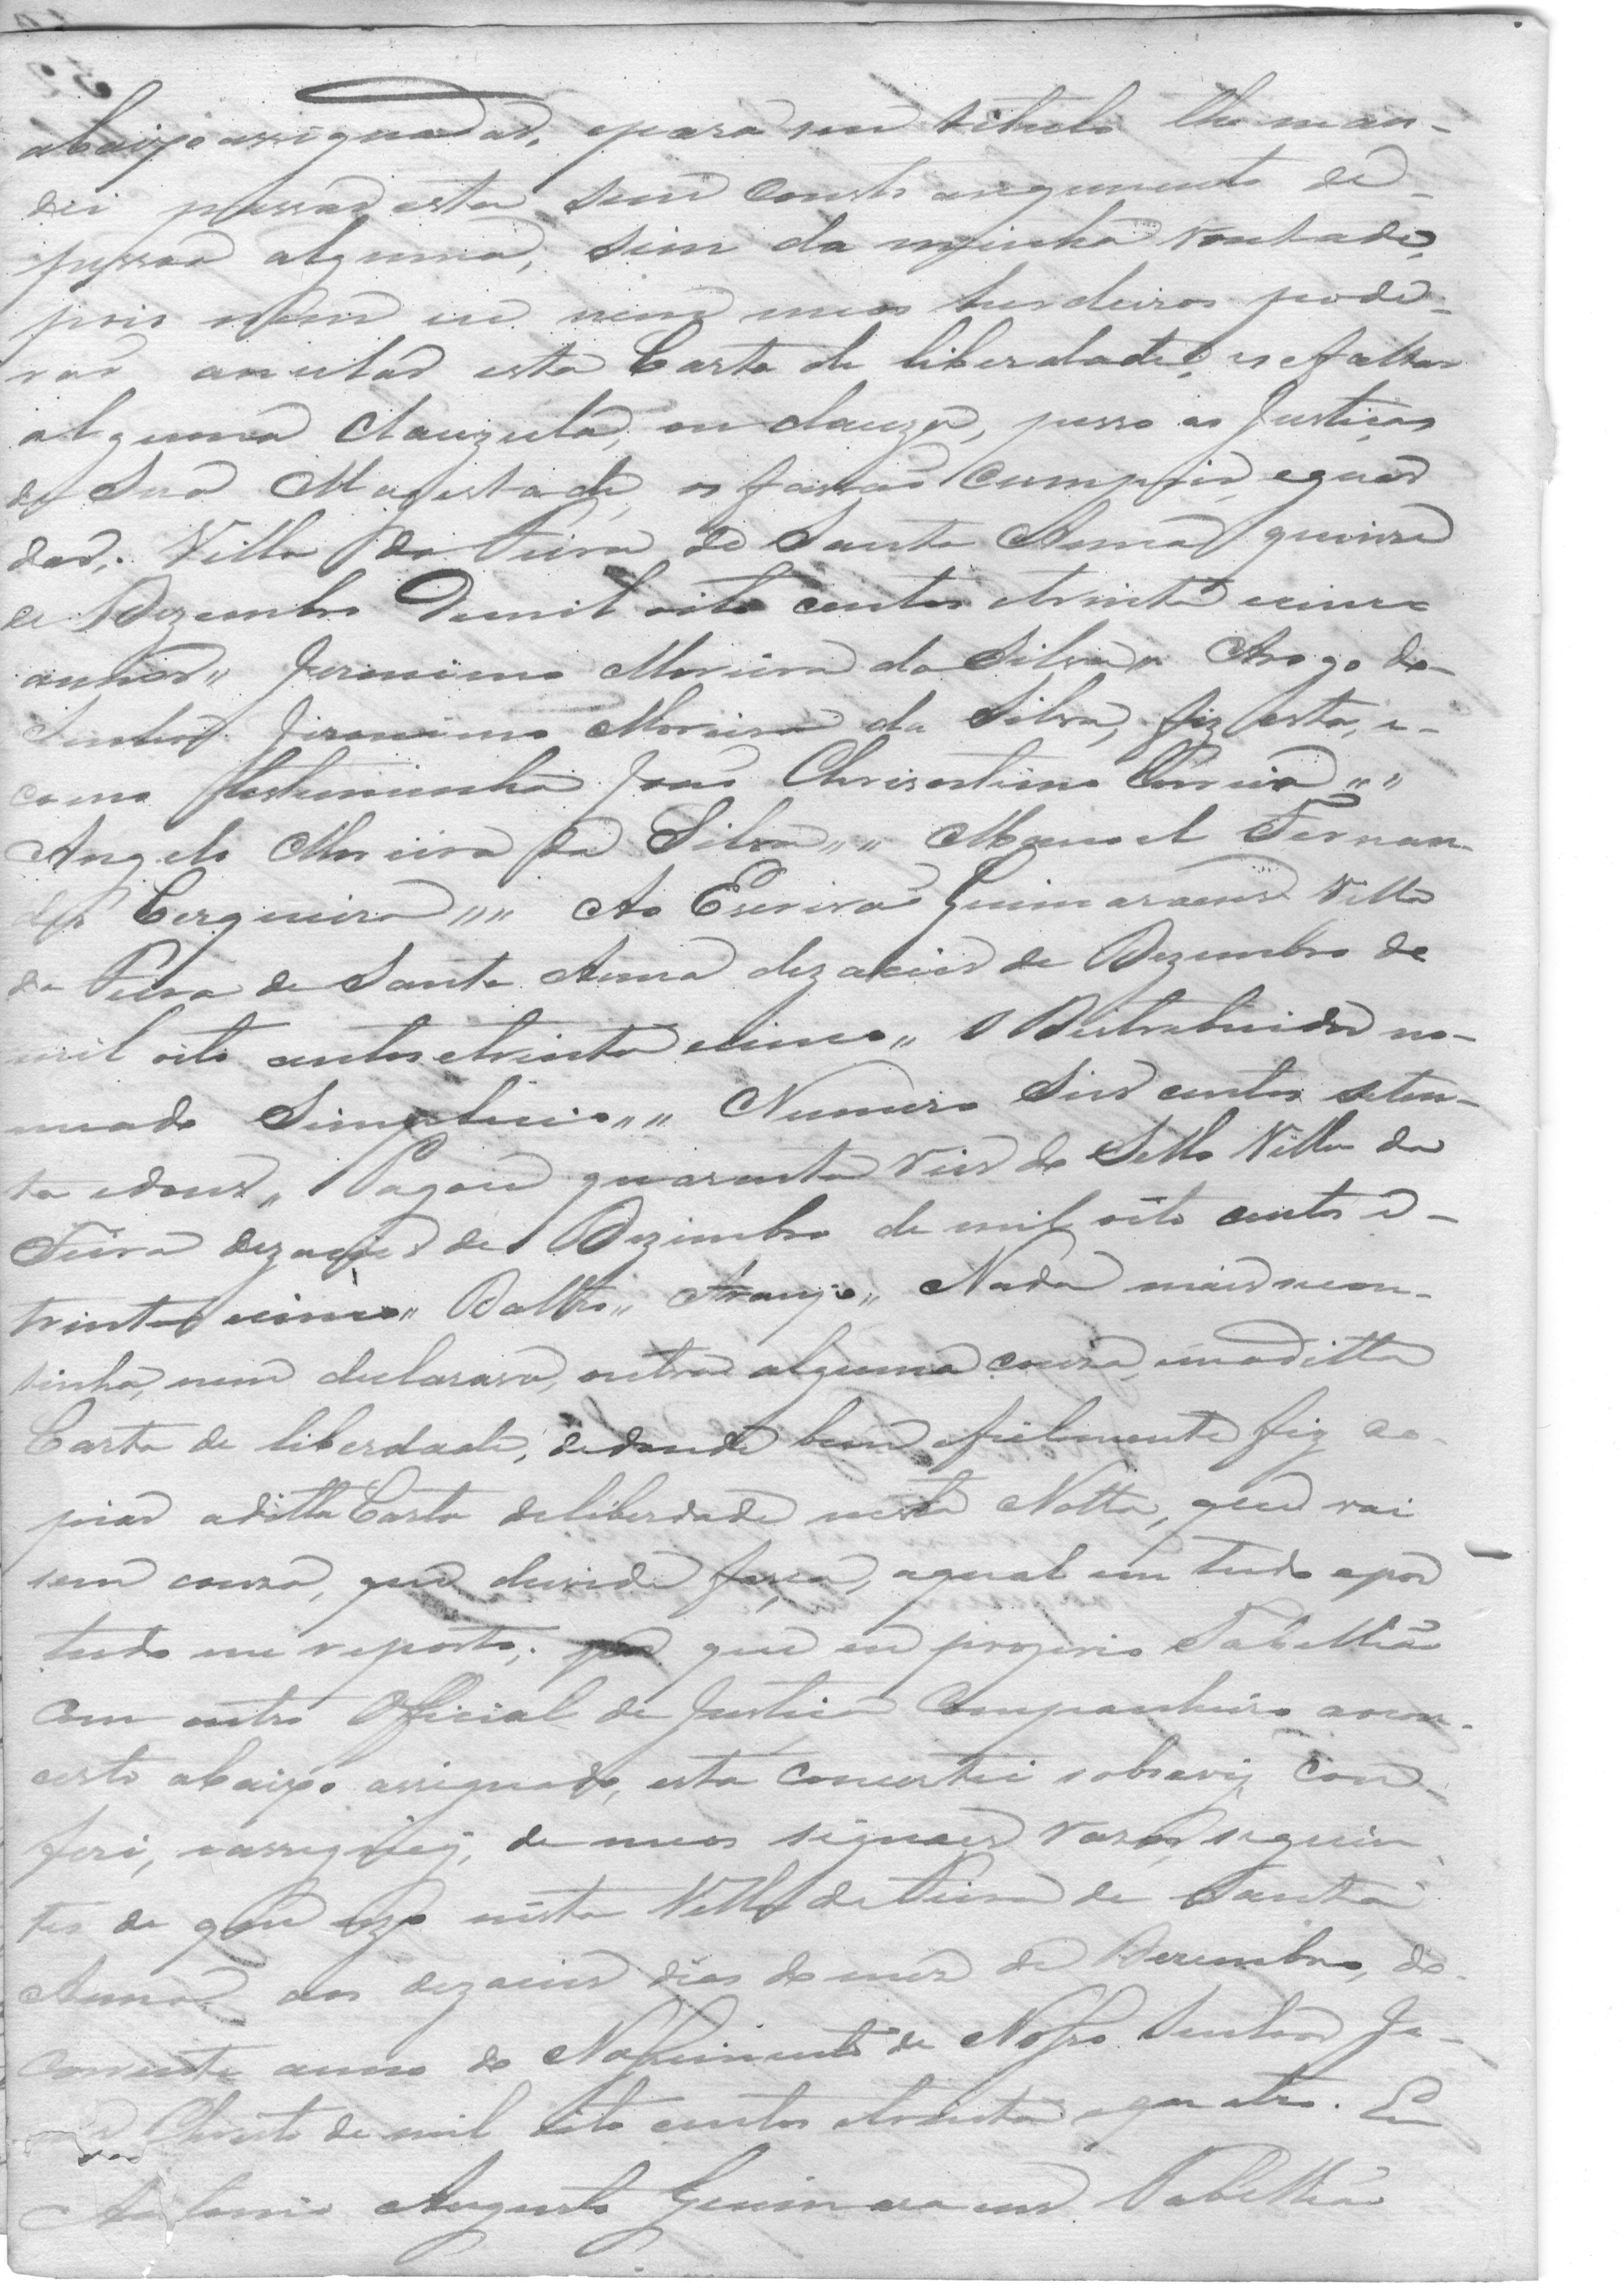 abaixo assignadas, epara seu titulo lhe man-
dei passar esta sem constrangimento de-
pessoa alguma, sim da minha vontade,
pois nem eu nem meos herdeiros pode-
raõ anular esta Carta de liberdade, esefaltar
alguma Clauzula, ou clauza, pesso as Justiças
de Sua Magestade, afassaõ cumprir, eguar
dar. Villa da Feira de Santa Anna quinze
de Dezembro demil oito centos etrinta ecinco
annos,, Jeronimo Moreira da Silva,, Arogo do-
Senhor Jeronimo Moreira da Silva, fiz esta, e-
como testemunha Joaõ Chrisostimo Correia,,,,
Angelo Moreira da Silva,,,, Manoel Fernan-
des Cerqueira,,,, Ao Escrivaõ Guimaraens Villa
da Feira de Santa Anna dezaceis de Dezembro de
mil oito centos etrinta ecinco,, O Destribuidor no-
meado Simplicio,,,, Numero Seis centos seten-
ta edous,, Pagou quarenta reis do Sello Villa da
Feira dezaceis de Dezimbro de mil oito centos e-
trinta ecinco,, Daltro,, Araujo,, Nada mais secon-
tinha, nem declarava, outra alguma couza, emaditta
Carta de liberdade, dedonde bem efielmente fiz co-
piar aditta Carta deliberdade nesta Notta, que vai
sem couza, que duvida faça, aqual em tudo epor
tudo me reporto; que eu proprio Tabelliaõ
com outro Official de Justica Companheiro aocon-
certo abaixo assignado, esta concertei sobscrevi, con-
feri, eassigney, de meos signaes razos seguin
tes de que uzo nesta Villa da Feira de Santa
Anna aos dezaceis dias do mez de Dezembro, do-
corrente anno do Nascimento de Nosso Senhor Je-
Christo de mil oito centos etrinta equatro. Eu
Antonio Augusto Guimaraens Tabelliaõ